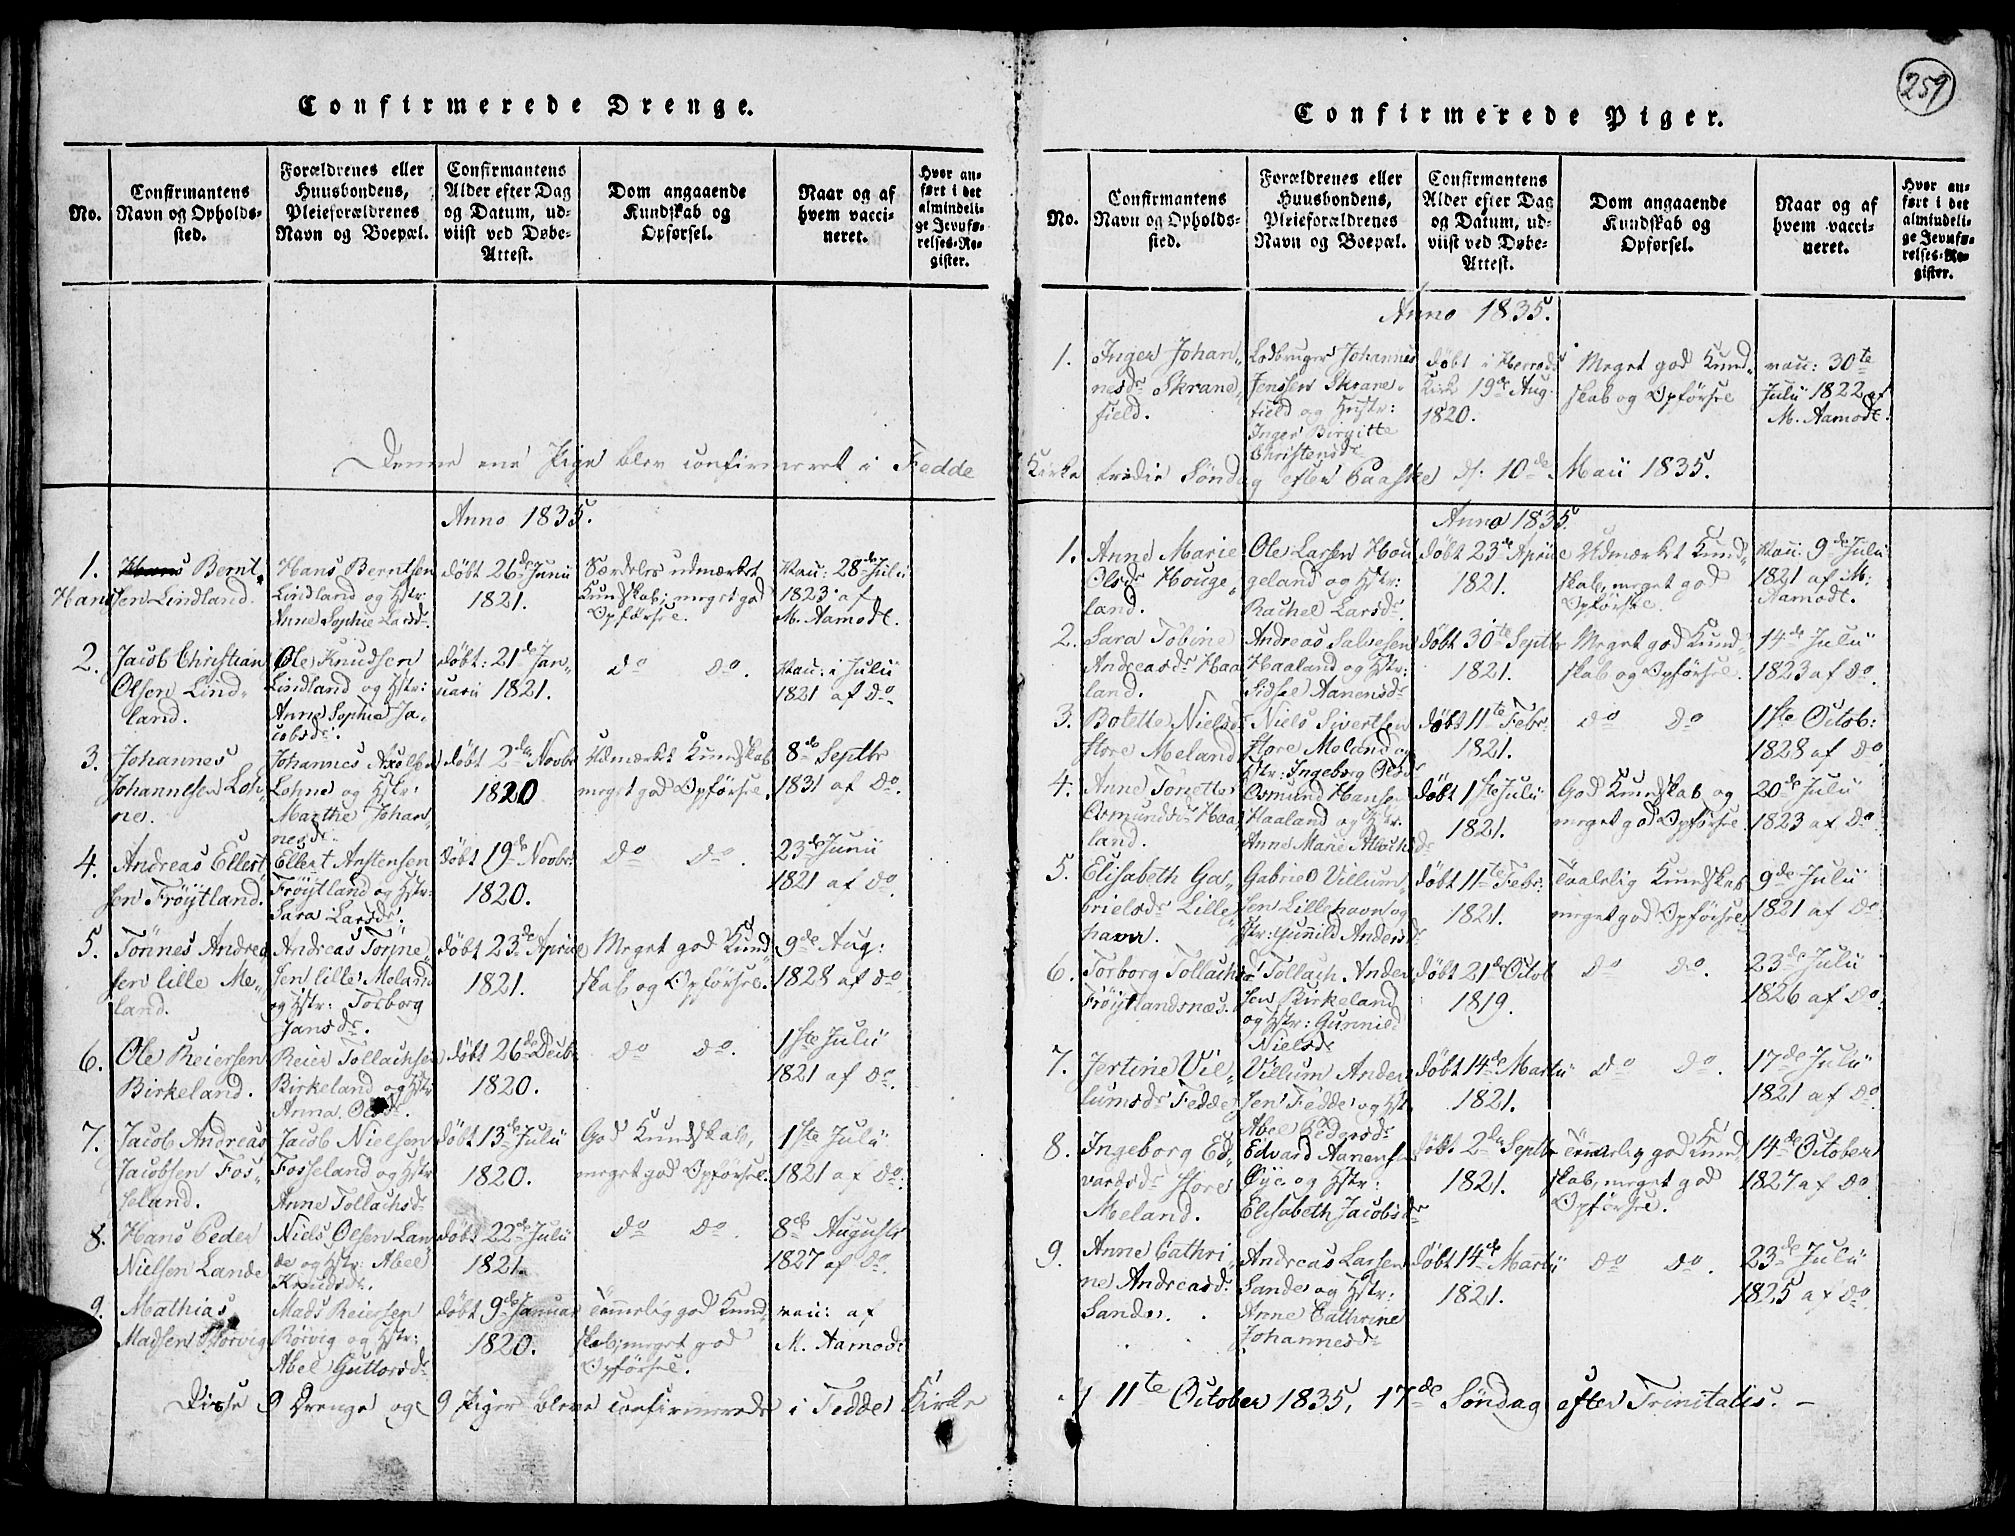 259
Confirmerede Drenge.
No.
Confirmantens
Navn og Opholds-
sted.
Forældrenes eller
Huusbondens,
Pleieforældrenes
Navn og Boepæl.
Confirmantens
Alder efter Dag
og Datum, ud-
viist ved Døbe-
Attest.
Dom angaaende
Kundskab og
Opførsel.
Naar og af
hvem vacci-
neret.
Hvor an-
ført i det
almindeli-
ge Jevnfø-
relses-Re-
gister.
Denne ene Pige blev confirmeret i Fedde
Anno 1835.
1.
Hans Bernt
Hansen Lindland.
Hans Berntsen
Lindland og Hstr
Anne Sophie Larsdr.
døbt 26de Junii
1821.
Særdeles udmærket
Kunskab; meget god
Opførsel.
Vac: 28de Julii
1823 af
M. Aamodt.
2.
Jacob Christian
Olsen Lind-
land.
Ole Knudsen
Lindland og Hstr:
Anne Sophie Ja-
cobsdr.
døbt: 21de Jan-
uarii 1821.
do do.
Vac: i Julii
1821 af do.
3.
Johannes
Johannesen Loh-
ne.
Johannes Axelsen
Lohne og Hstr:
Marthe Johan-
nesdr.
døbt 2den Novbr
1820
Udmærket Kunskab
meget god Opførsel.
8de Septbr
1831 af do.
4.
Andreas Ellert-
sen Frøytland.
Ellert Anstensen
Frøytland og Hstr:
Sara Larsdr.
døbt 19de Novbr.
1820.
do do.
23de Junii
1821 af do.
5.
Tönnes Andrea-
sen lille Me-
land.
Andreas Tönne-
sen lille Meland
og Hstr: Torborg
Jansdr.
døbt 23de Aprile
1821.
Meget god Kund-
skab og Opførsel.
9de Aug:
1828 af do
6.
Ole Reiersen
Birkeland.
Reier Tollachsen
Birkeland og Hstr
Anna Olsdr.
døbt 26de Decbr
1820.
do do.
1ste Julii
1821 af do.
7.
Jacob Andreas
Jacobsen Fos-
seland.
Jacob Nielsen
Fosseland og Hstr
Anne Tollachsdr
døbt 13de Julii
1820.
God Kundskab,
meget god Opførsel.
1ste Julii
1821 af do.
8.
Hans Peder
Nielsen Lande
Niels Olsen Lan-
de og Hstr: Abel
Knudsdr.
døbt 22de Julii
1821.
do do.
8de Augustr
1827 af do.
9.
Mathias
Madsen Rörvig
Mads Reiersen
Rörvig og Hstr:
Abel Guttorsdr
døbt 9de Januar
1820.
Temmelig god Kund-
skab; meget god
Opførsel.
vac: af
M. Aamodt
Disse 9 Drenge og 9 Piger bleve confirmerede i Fedde Kirke
Confirmerede Piger.
No.
Confirmantens
Navn og Opholds-
sted.
Forældrenes eller
Huusbondens,
Pleieforældrenes
Navn og Boepæl.
Confirmantens
Alder efter Dag
og Datum, ud-
viist ved Døbe-
Attest.
Dom angaaende
Kundskab og
Opførsel.
Naar og af
hvem vacci-
neret.
Hvor an-
ført i det
almindeli-
ge Jevnfø-
relses-Re-
gister.
Anno 1835.
1.
Inger Johan-
nesdr Skrane-
field.
Lodbruger Johannes
Jenssen Skrane-
field og Hustr:
Inger Birgitte
Christensdr
døbt i Herrøds
Kirk 19de Aug.
1820.
Meget god Kund-
skab og Opførsel
vac: 30te
Julii 1822 af
M. Aamodt.
Kirke tredie Søndag efter Paaske d: 10de Maii 1835.
Anno 1835.
1.
Anne Marie
Olsdr Houge-
land.
Ole Larsen Hou
geland og Hstr:
Rachel Larsdr.
døbt 23de Aprile
1821.
Udmærket Kund-
skab, meget god
Opførsel.
Vac: 9de Julii
1821 af M:
Aamodt.
2.
Sara Tobine
Andreasdr Haa
land.
Andreas Salvesen
Haaland og Hstr:
Sidsel Aanensdr
døbt 30te Septbr
1821.
Meget god Kund-
skab og Opførsel.
14de Julii
1823 af do.
3.
Botette Nielsdr
store Meland
Niels Sivertsen
store Meland og
Hstr: Ingeborg Olsdr
døbt 11te Febr:
1821.
do do
1ste Octob:
1828 af do
4.
Anne Tonette
Osmundsdr Haa-
land.
Osmund Hansen
Haaland og Hstr.
Anne Marie
døbt 1ste Julii
1821.
God Kunskab og
meget god Opførsel
20de Julii
1823 af do
5.
Elisabeth Ga-
brielsdr Lille-
havn.
Gabriel Villum-
sen Lillehavn og
Hstr: Gunnild Andersdr
døbt 11te Febr:
1821.
Taalelig Kundskab
meget god Opførsel
9de Julii
1821 af do
6.
Torborg Tollachsdr
Frøytlandsnæs.
Tollach Ander
sen Birkeland
og Hstr: Gunnild
Nielsdr
døbt 21de Octob
1819.
do do.
23de Julii
1826 af do.
7.
Jertine Vil-
lumsdr Fedde
Villum Ander
sen Fedde og Hstr
Abel Pedersdr
døbt 14de Martii
1821.
do do.
17de Julii
1821 af do
8.
Ingeborg Ed-
vardsdr store
Meland.
Edvard Aanensen
Øye og Hstr:
Elisabeth Jacobsdr
døbt 2den Septbr
1821.
Temmelig god Kund
skab, meget god
Opførsel.
14de October
1827 af do
9.
Anne Cathri
ne Andreasdr
Sande.
Andreas Larsen
Sande og Hstr:
Anne Cathrine
Johannesdr
døbt 14de Martii
1821.
do do.
23de Julii
1825 af do.
d 11te October 1835, 17de Søndag efter Trinitatis. –